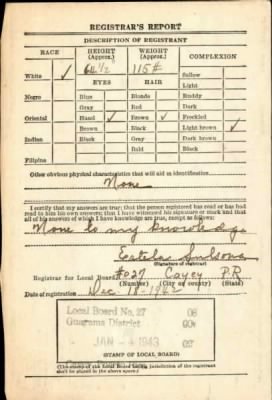 REGISTRAR'S REPORT
DESCRIPTION OF REGISTRANT
RACE HEIGHT (Approx.) WEIGHT (Approx.) COMPLEXION
White ✓ 64 1/2 115# Sallow
EYES HAIR Light
Negro Blue Blonde Ruddy
Gray Red Dark
Oriental Hazel ✓ Brown ✓ Freckled
Brown Black Light brown ✓
Indian Black Gray Dark brown
Bald Black
Filipino
Other obvious physical characteristics that will aid in identification
None
I certify that my answers are true; that the person registered has read or has had read to him his own answers; that I have witnessed his signature or mark and that all of his answers of which I have knowledge are true, except as follows:
None to my knowledge
(Signature of registrar)
Registrar for Local Board #027 Cayey P.R
(Number) (City or county) (State)
Date of registration Dec 18-1942
Local Board No. 27
Guayama District
JAN - 4 1943
(STAMP OF LOCAL BOARD)
(The stamp of the Local Board having jurisdiction of the registrant shall be placed in the above space.)